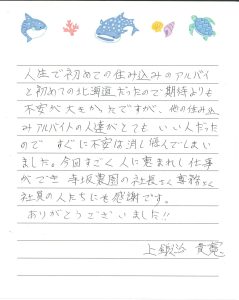 人生で初めての住み込みのアルバイ
と初めての北海道だったので期待よりも
不安が大きかったですが、他の住み込
みアルバイトの人達がとても いい人だった
ので すぐに不安は消し飛んでしまい
ました。今回すごく人に恵まれし仕事
ができ 寺坂農園の社長さん 専務さん
社員の人たちにも感謝です。
ありがとうございました!!
上飯沼 貴寛